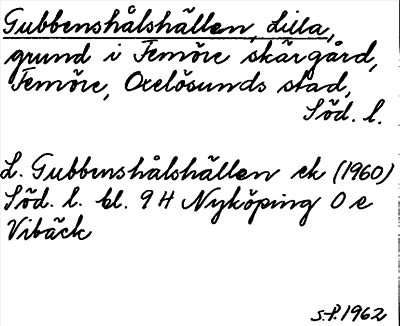 Gubbenshålshällen, Lilla,
grund i Femöre skärgård,
Femöre, Oxelösunds stad,
Söd. l.
L. Gubbenshålshällen ek (1960)
Söd. l. bl. 9 H Nyköping O e
Vibäck
S.F. 1962